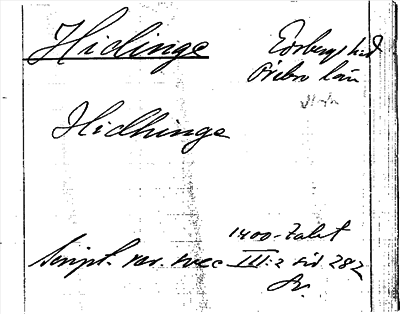 Hidinge
Edsbergs hd
Örebro län
Hidhinge
1400-talet
Script. rer. svec III:2 sid 282